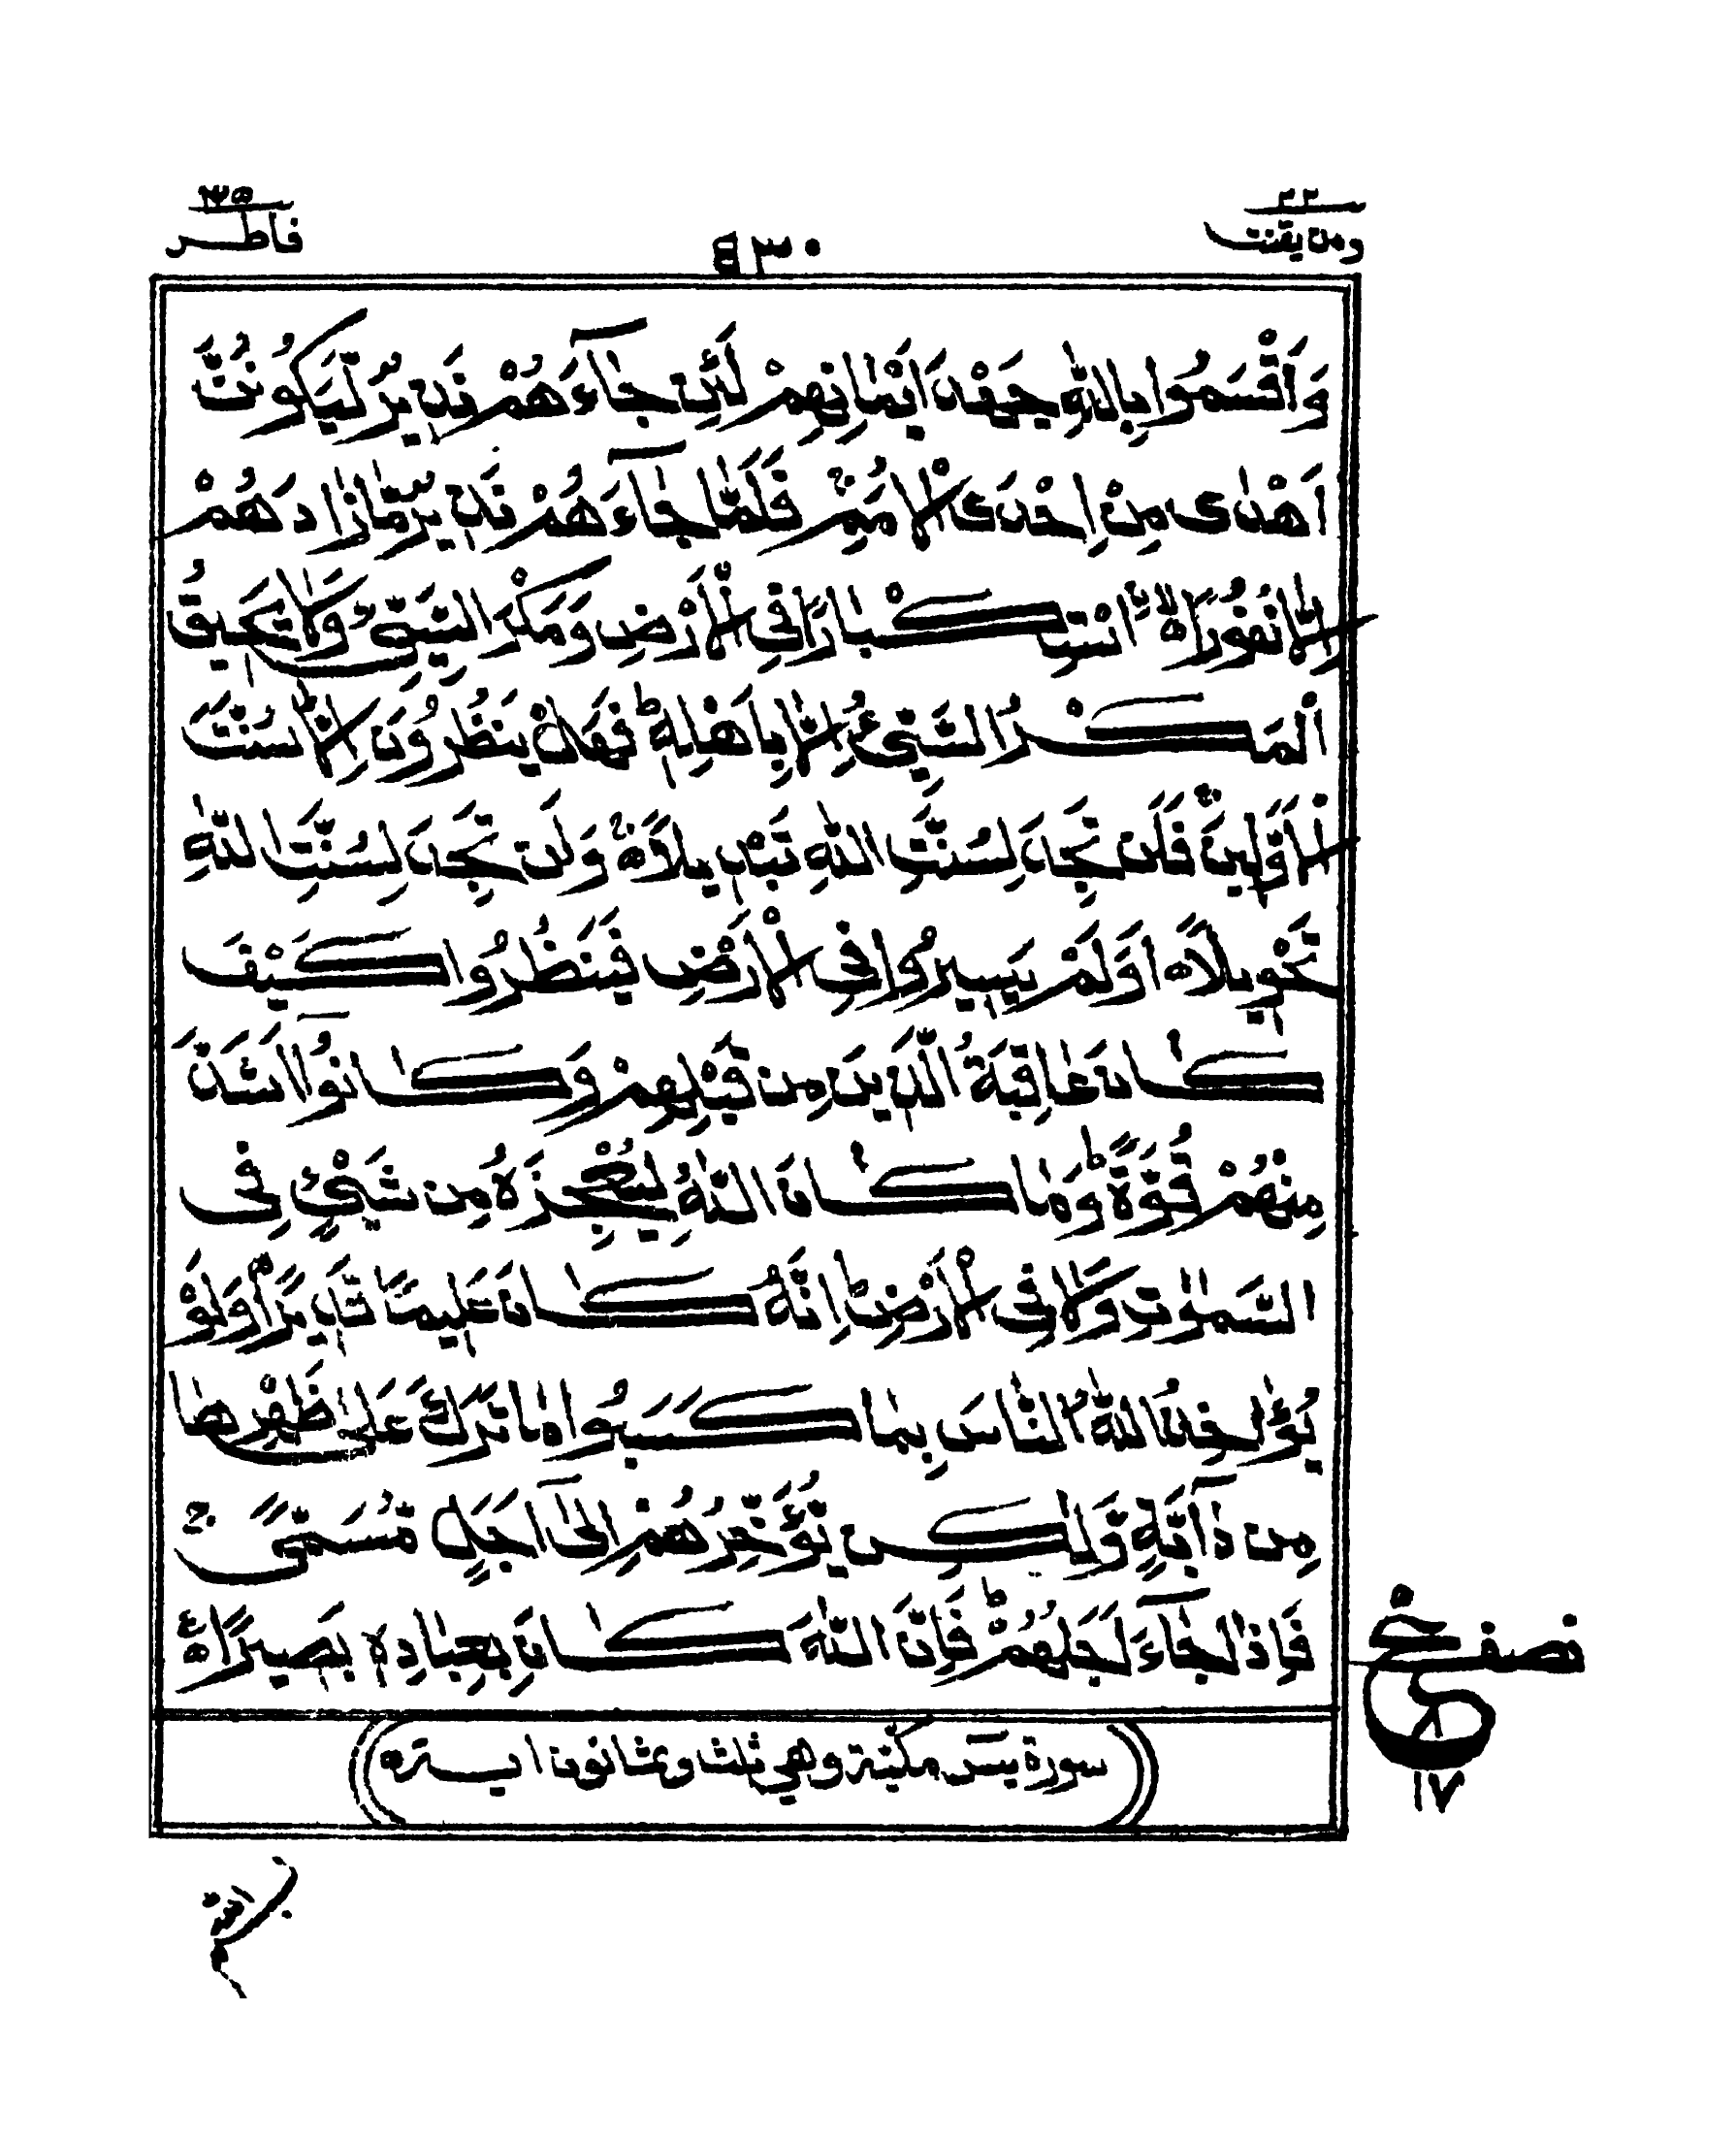 ومن يقنت ٢٢
٥٣٠
فاطر ٣٥
وَاَقْسَمُوْا بِاللّٰهِ جَهْدَ اَيْمَانِهِمْ لَئِنْ جَآءَهُمْ نَذِيْرٌ لَّيَكُوْنُنَّ
اَهْدٰى مِنْ اِحْدَى الْاُمَمِ ۚ فَلَمَّا جَآءَهُمْ نَذِيْرٌ مَّا زَادَهُمْ
اِلَّا نُفُوْرًا ۙ اسْتِكْبَارًا فِي الْاَرْضِ وَمَكْرَ السَّيِّئِ ؕ وَلَا يَحِيْقُ
الْمَكْرُ السَّيِّئُ اِلَّا بِاَهْلِهٖ ؕ فَهَلْ يَنْظُرُوْنَ اِلَّا سُنَّتَ
الْاَوَّلِيْنَ ۚ فَلَنْ تَجِدَ لِسُنَّتِ اللّٰهِ تَبْدِيْلًا ۚ وَلَنْ تَجِدَ لِسُنَّتِ اللّٰهِ
تَحْوِيْلًا ۝ اَوَلَمْ يَسِيْرُوْا فِي الْاَرْضِ فَيَنْظُرُوْا كَيْفَ
كَانَ عَاقِبَةُ الَّذِيْنَ مِنْ قَبْلِهِمْ وَكَانُوْٓا اَشَدَّ
مِنْهُمْ قُوَّةً ؕ وَمَا كَانَ اللّٰهُ لِيُعْجِزَهٗ مِنْ شَيْءٍ فِي
السَّمٰوٰتِ وَلَا فِي الْاَرْضِ ؕ اِنَّهٗ كَانَ عَلِيْمًا قَدِيْرًا ۝ وَلَوْ
يُؤَاخِذُ اللّٰهُ النَّاسَ بِمَا كَسَبُوْا مَا تَرَكَ عَلٰى ظَهْرِهَا
مِنْ دَآبَّةٍ وَّلٰكِنْ يُّؤَخِّرُهُمْ اِلٰٓى اَجَلٍ مُّسَمًّى ۚ
فَاِذَا جَآءَ اَجَلُهُمْ فَاِنَّ اللّٰهَ كَانَ بِعِبَادِهٖ بَصِيْرًا ۝
نصف
ع
١٧
سورة يٰسٓ مكيّة وهي ثلث وثمانون اية